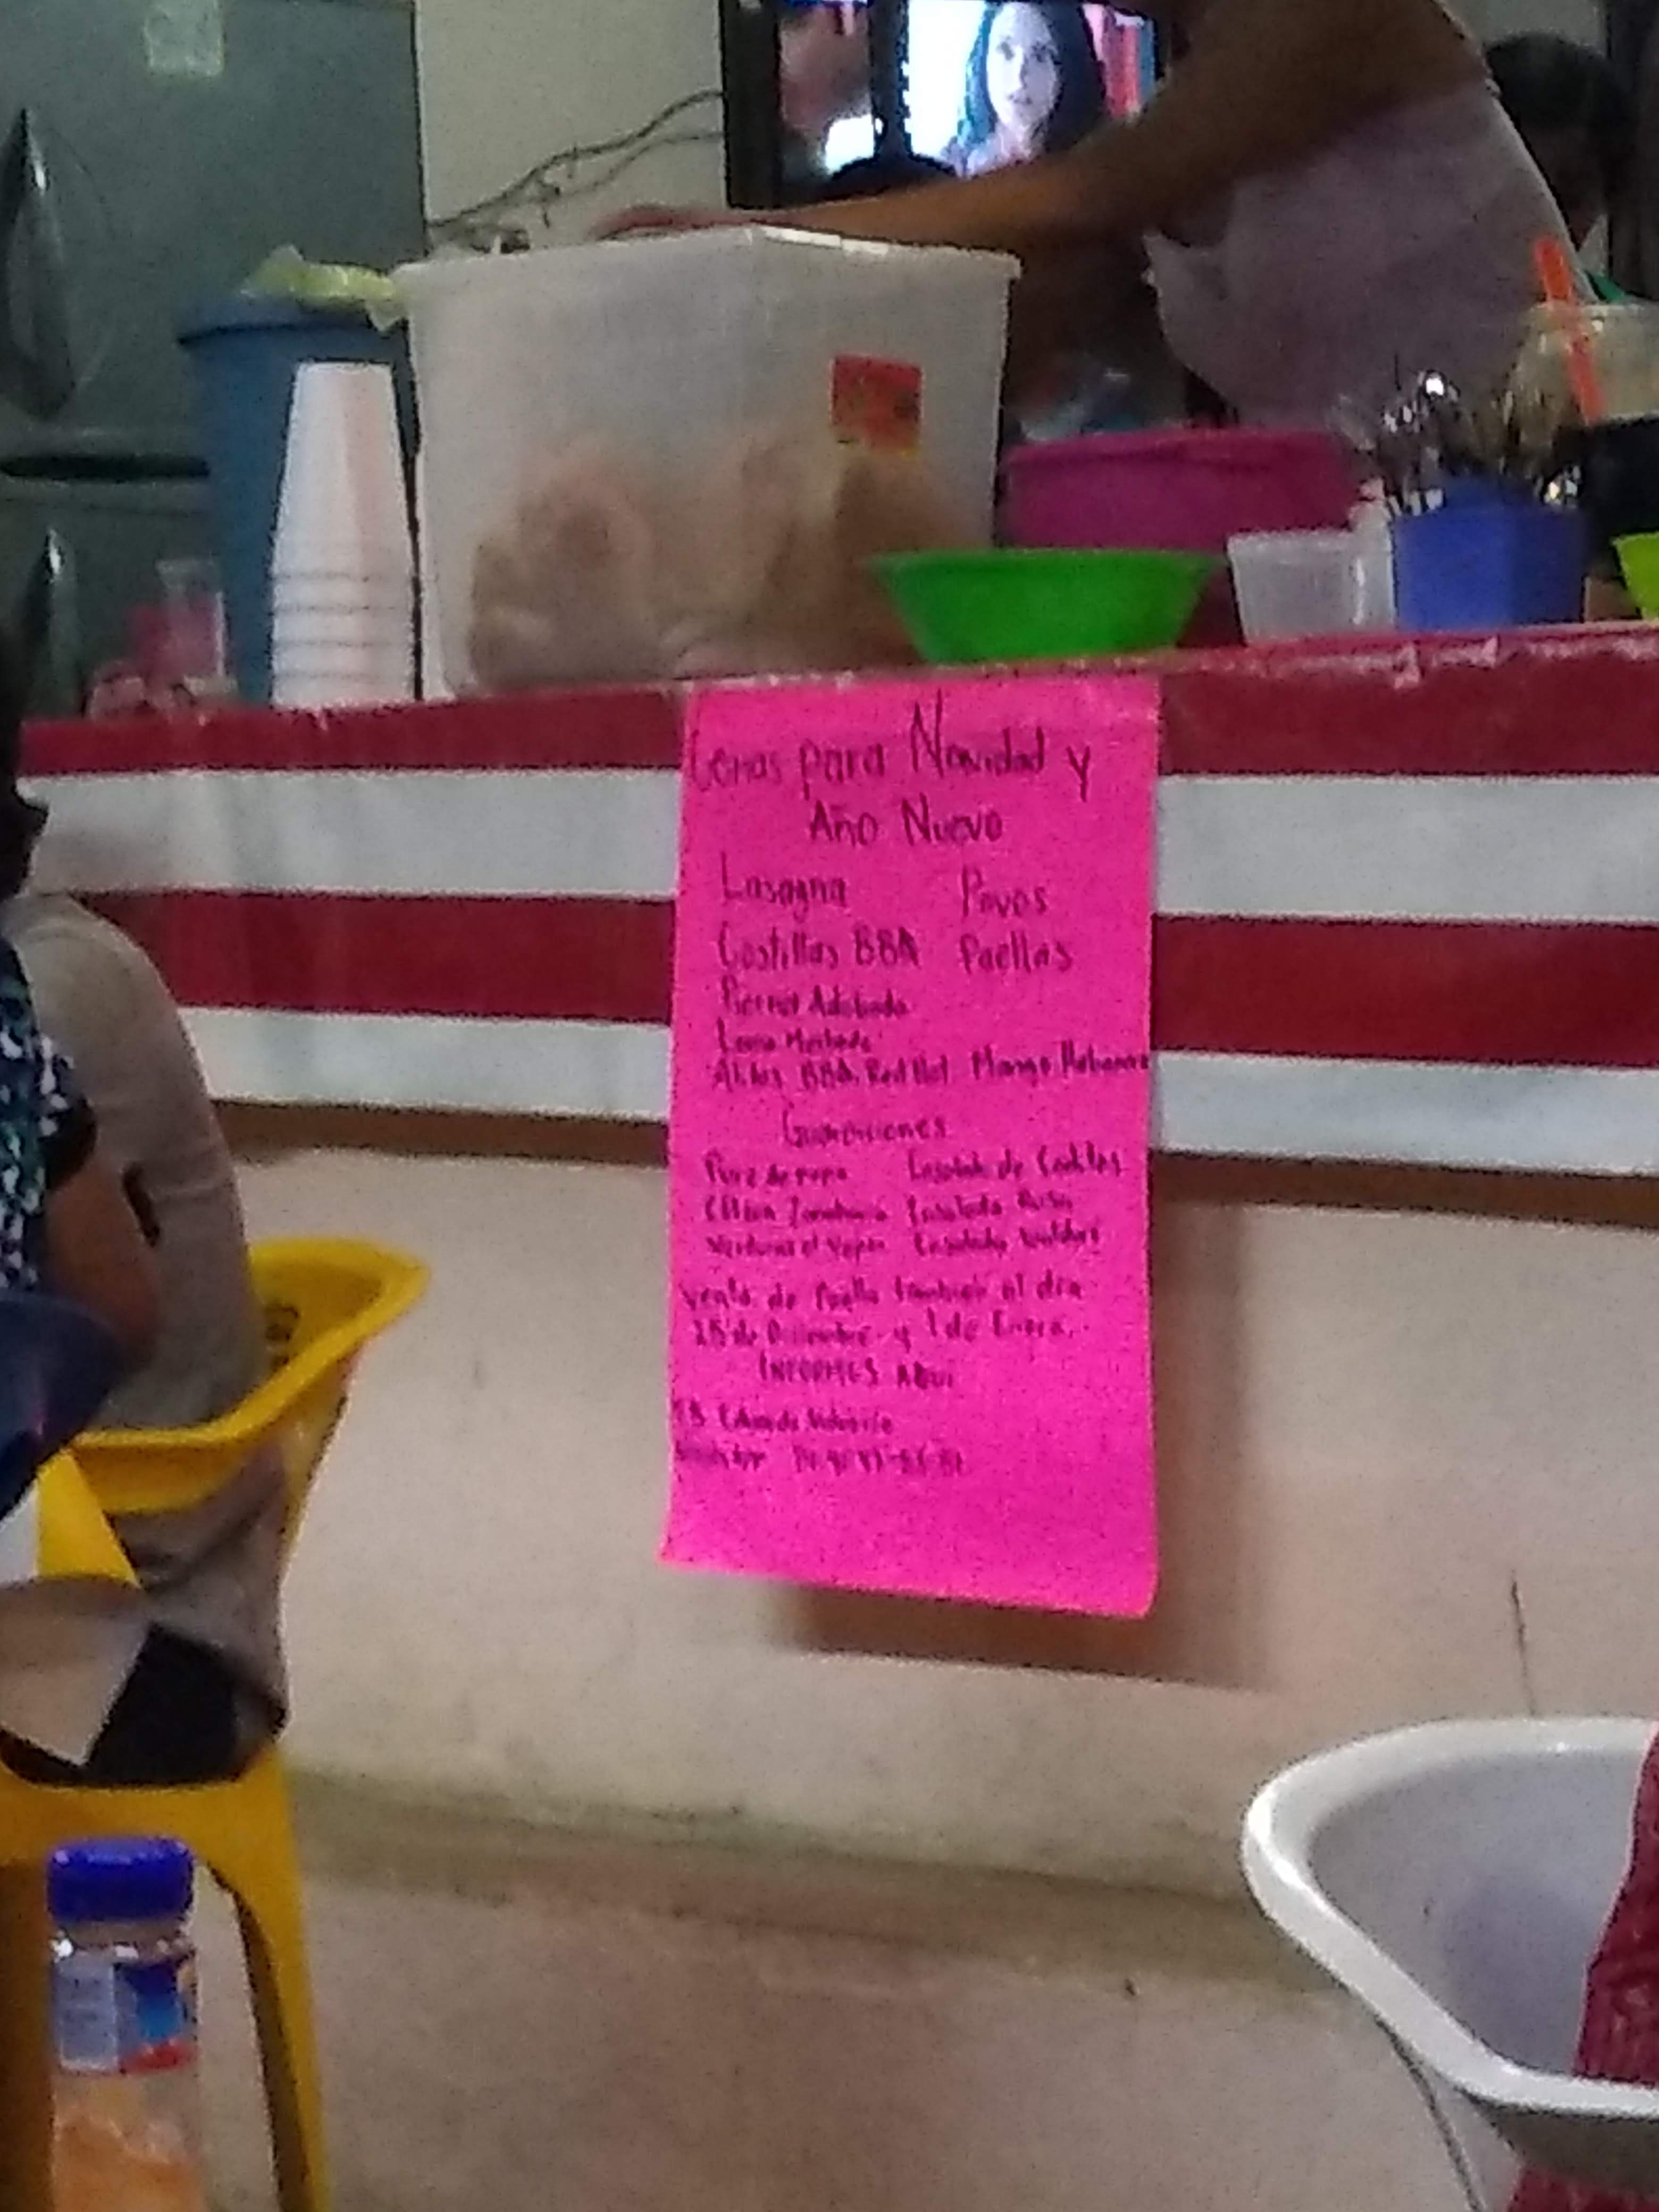 Cenas para Navidad y
Año Nuevo
Lasagna Pavos
Costillas BBA Paellas
Pierna Adobada
Lomo Mechado
Alitas BBA, Red Hot Mango Habanero
Guarniciones
Pure de papa Ensalada de Coditos
Ensalada Rusa
Verduras al Vapor Ensalada
Venta de Paella también el día
25 de Diciembre y 1 de Enero.
INFORMES AQUI
FB Eduardo